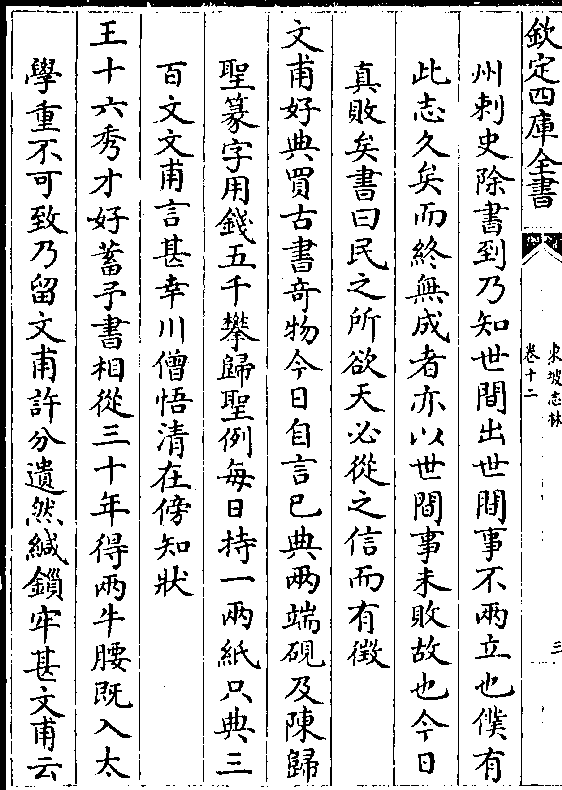 欽定四庫全書
東坡志林
卷十二
三
州刺史除書到乃知世間出世間事不兩立也僕有
此志久矣而終無成者亦以世間事未敗故也今日
真敗矣書曰民之所欲天必從之信而有徵
文甫好典買古書奇物今日自言已典兩端硯及陳歸
聖篆字用錢五千攀歸聖例每日持一兩紙只典三
百文文甫言甚幸川僧悟清在傍知狀
王十六秀才好蓄予書相從三十年得兩牛腰既入太
學重不可致乃留文甫許分遺然緘鎖牢甚文甫云